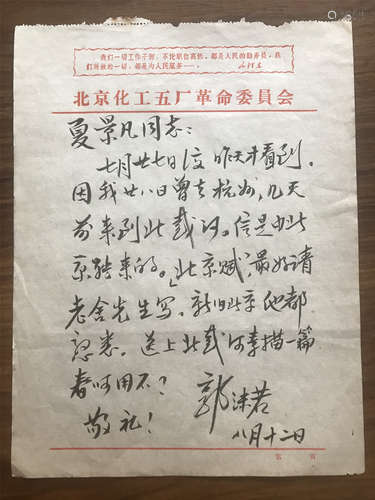 我们一切工作干部，不论职位高低，都是人民的勤务员，我
们所做的一切，都是为人民服务……。
毛泽东
北京化工五厂革命委員會
夏景凡同志：
七月廿七日信昨天才看到。
因我廿八日曾去杭州，几天
前来到北戴河。信是由北
京转来的。「北京赋」最好请
老舍先生写。新旧北京他都
熟悉。送上北戴河素描一篇
看可用不？
敬礼！
郭沫若
八月十二日
第 页